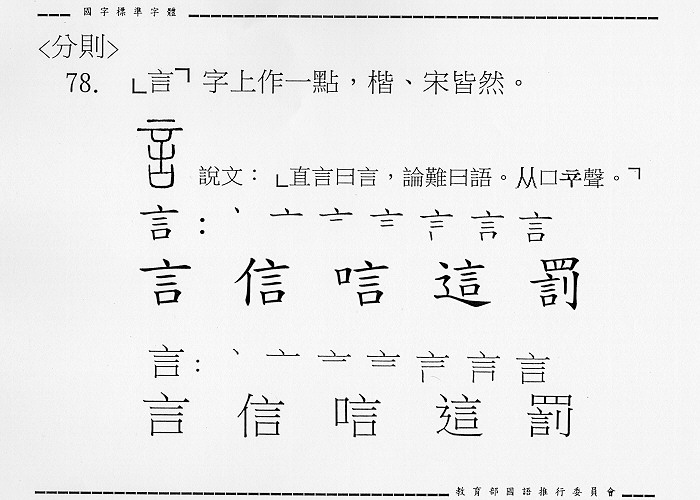 國字標準字體
<分則>
78. 「言」字上作一點，楷、宋皆然。
說文：「直言曰言，論難曰語。从口䇂聲。」
言： 丶 亠 言
言 信 唁 這 罰
言： 丶 亠 言
言 信 唁 這 罰
教育部國語推行委員會